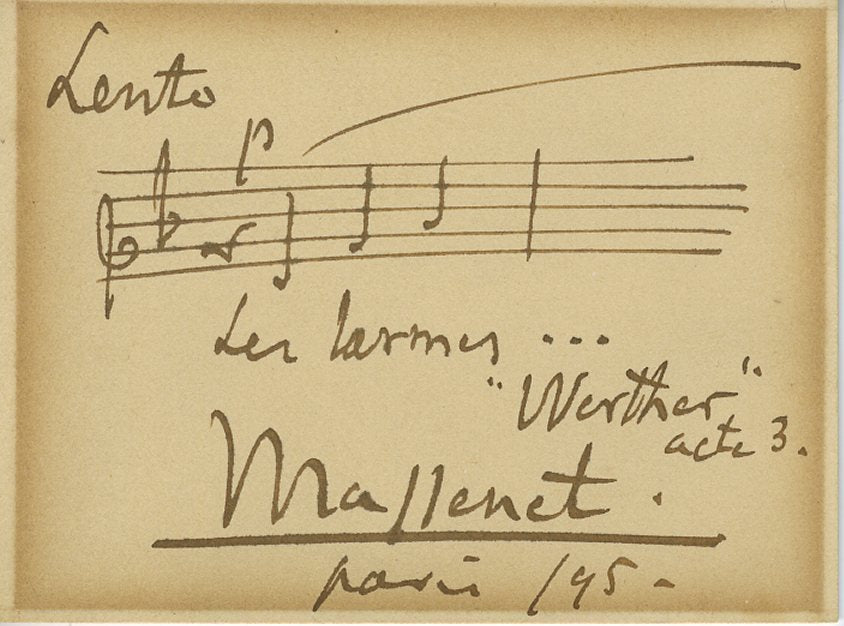 Lento
p
Les larmes ...
"Werther"
acte 3.
Massenet.
paris /95-